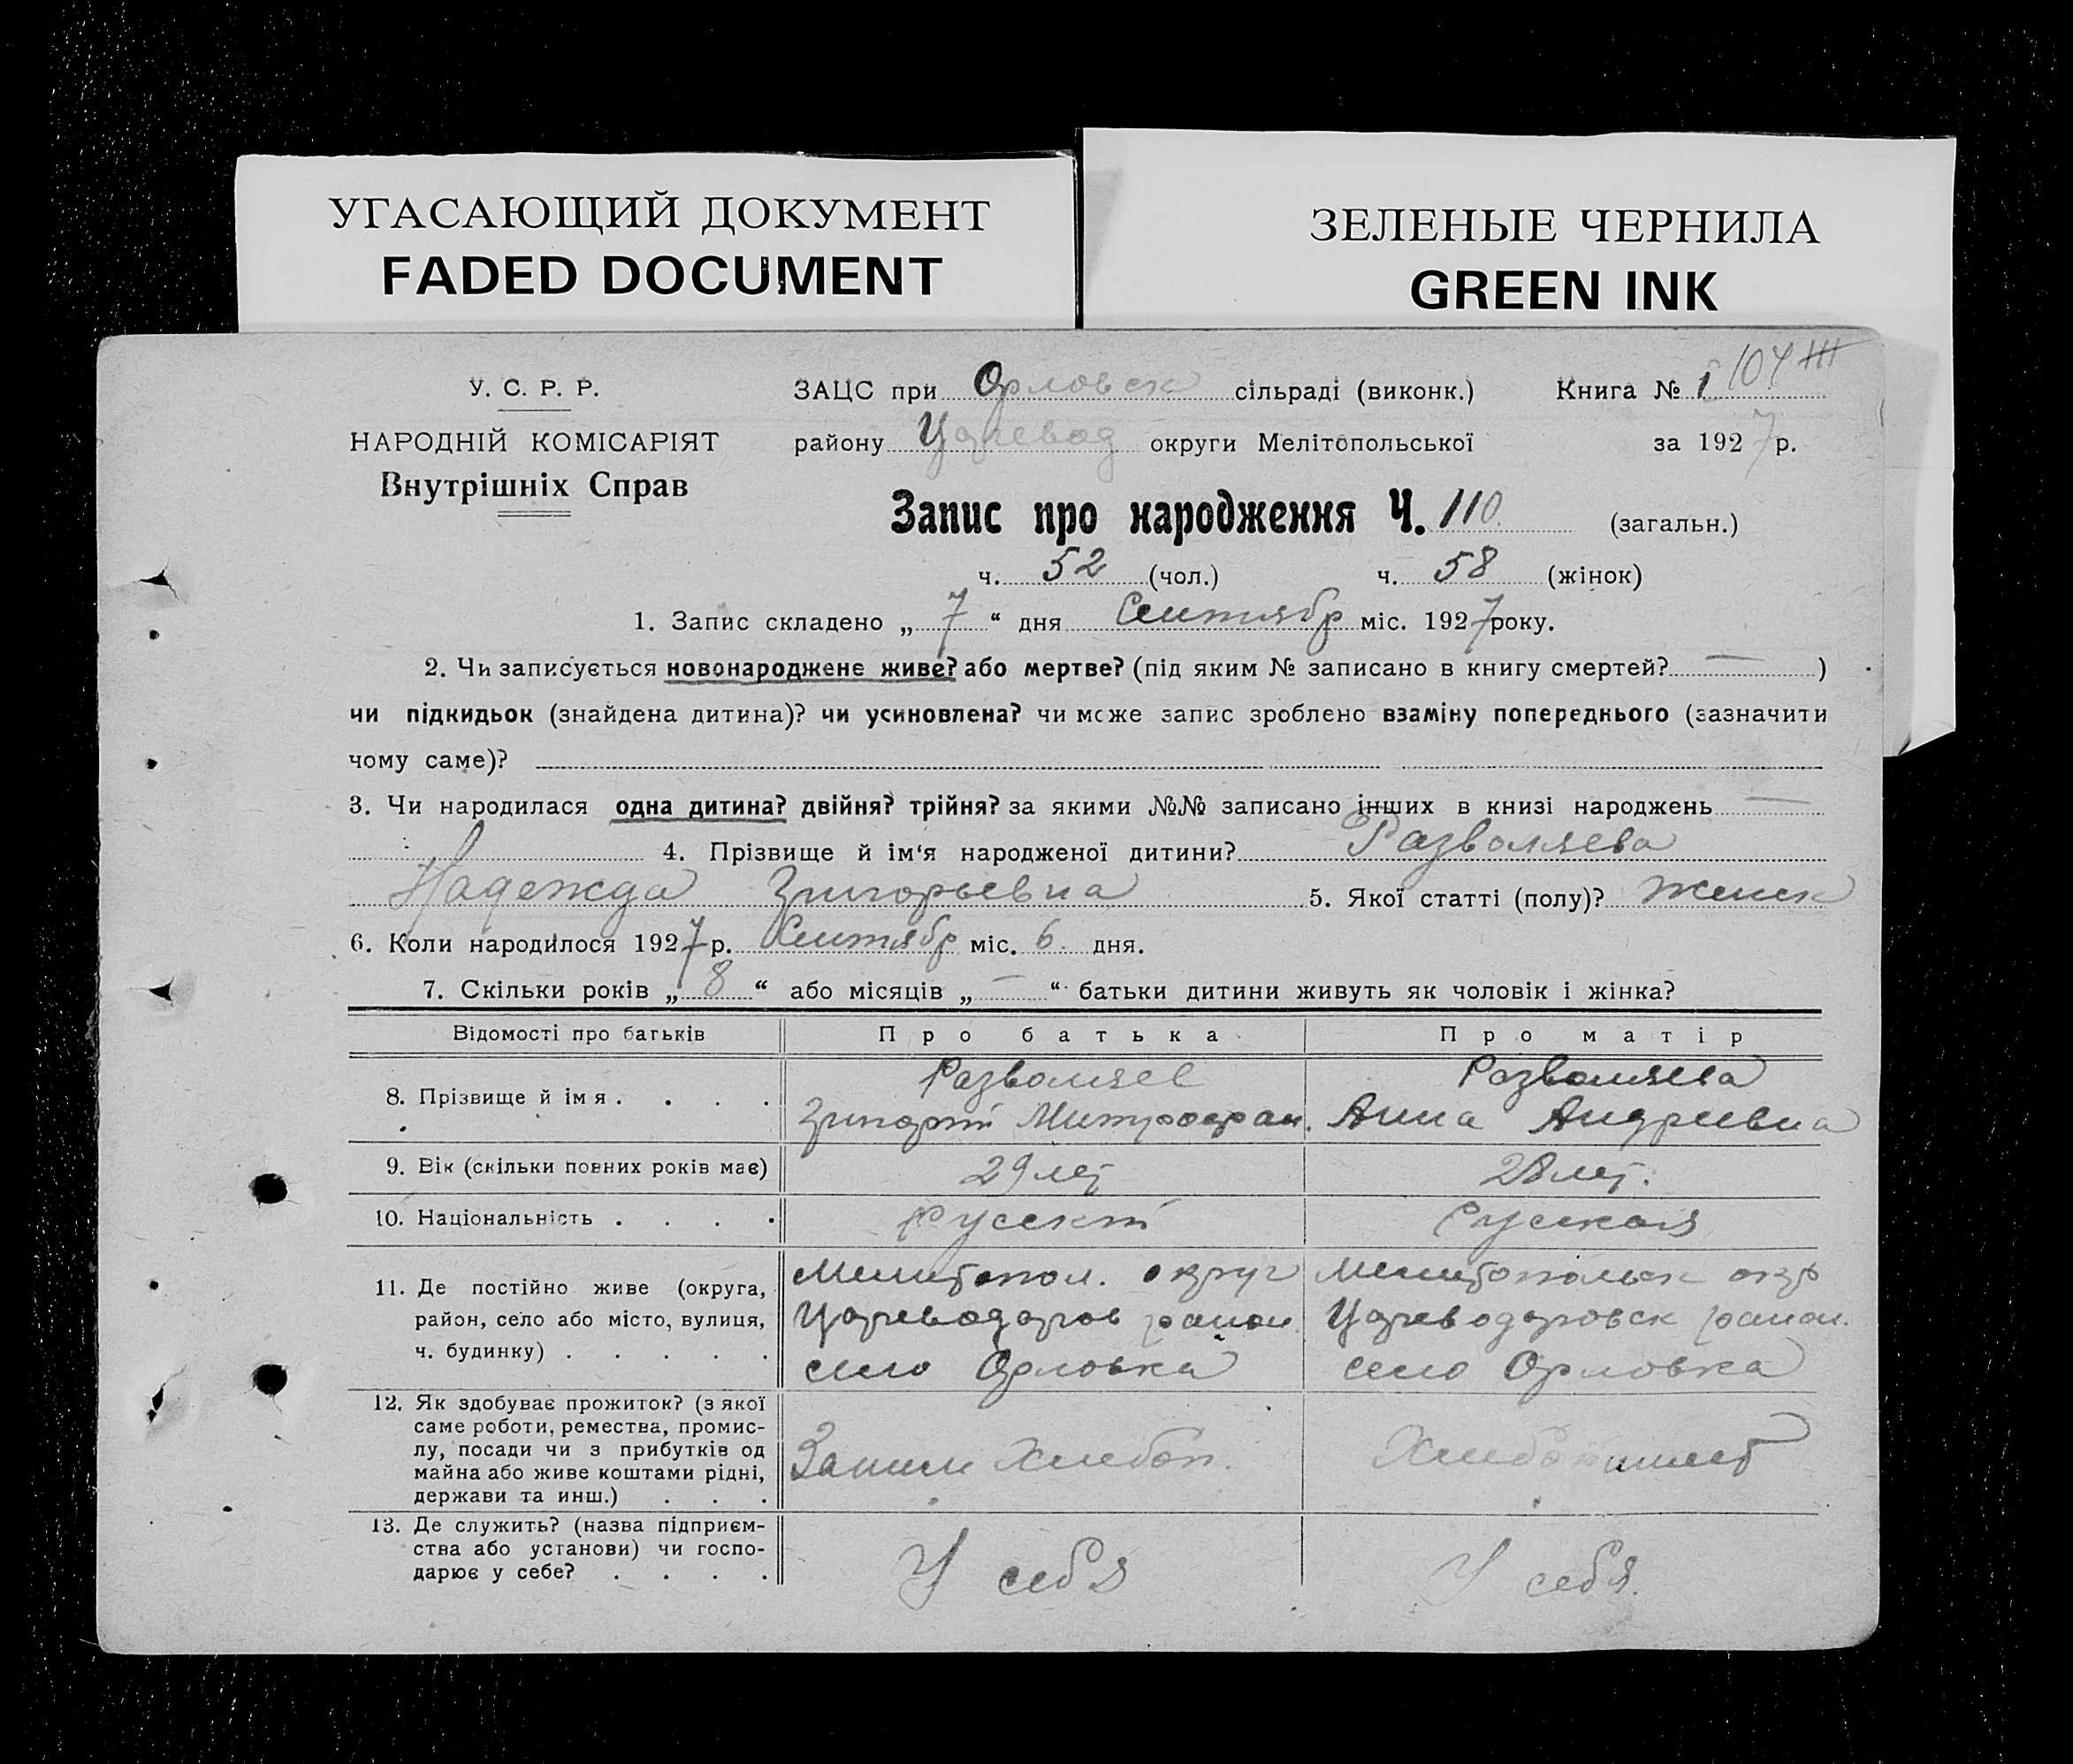 УГАСАЮЩИЙ ДОКУМЕНТ
FADED DOCUMENT
ЗЕЛЕНЫЕ ЧЕРНИЛА
GREEN INK
У. С. Р. Р.
НАРОДНІЙ КОМІСАРІЯТ
Внутрішніх Справ
ЗАЦС при Орловск сільраді (виконк.) Книга № 1 104 III
району Царевод округи Мелітопольської за 1927 р.
Запис про народження Ч. 110 (загальн.)
ч. 52 (чол.) ч. 58 (жінок)
1. Запис складено „ 7 “ дня Сентябр міс. 1927 року.
2. Чи записується новонароджене живе? або мертве? (під яким № записано в книгу смертей? — )
чи підкидьок (знайдена дитина)? чи усиновлена? чи може запис зроблено взаміну попереднього (зазначити
чому саме)?
3. Чи народилася одна дитина? двійня? трійня? за якими №№ записано інших в книзі народжень —
4. Прізвище й ім‘я народженої дитини? Разволяева
Надежда Григорьевна 5. Якої статті (полу)? Женск
6. Коли народилося 1927 р. Сентябр міс. 6 дня.
7. Скільки років „ 8 “ або місяців „ — “ батьки дитини живуть як чоловік і жінка?
Відомості про батьків Про батька Про матір
8. Прізвище й імя . . . . Разволяев Разволяева
Григорій Митрофан. Анна Андреевна
9. Вік (скільки повних років має) 29 лет 28 лет.
10. Національність . . . . Русскій Русская
11. Де постійно живе (округа, Мелитопол. округ Мелитопольск окр
район, село або місто, вулиця, Цареводаров район. Цареводаровск район.
ч. будинку) . . . . . село Орловка село Орловка
12. Як здобуває прожиток? (з якої
саме роботи, ремества, промис-
лу, посади чи з прибутків од
майна або живе коштами рідні, Хлебоп.
держави та инш.) . . .
13. Де служить? (назва підприєм-
ства або установи) чи госпо- У себя У себя.
дарює у себе? . . . .